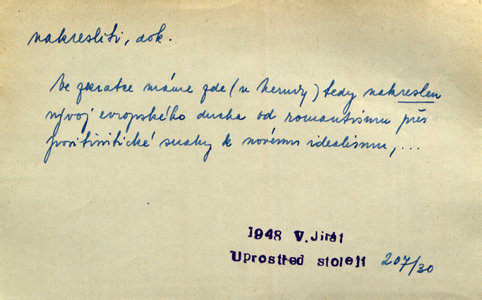 nakresliti, dok.
Ve zkratce máme zde (u Nerudy) tedy nakreslen
vývoj evropského ducha od romantismu přes
positivistické snahy k novému idealismu, ...
1948 V. Jirát
Uprostřed století 207/30